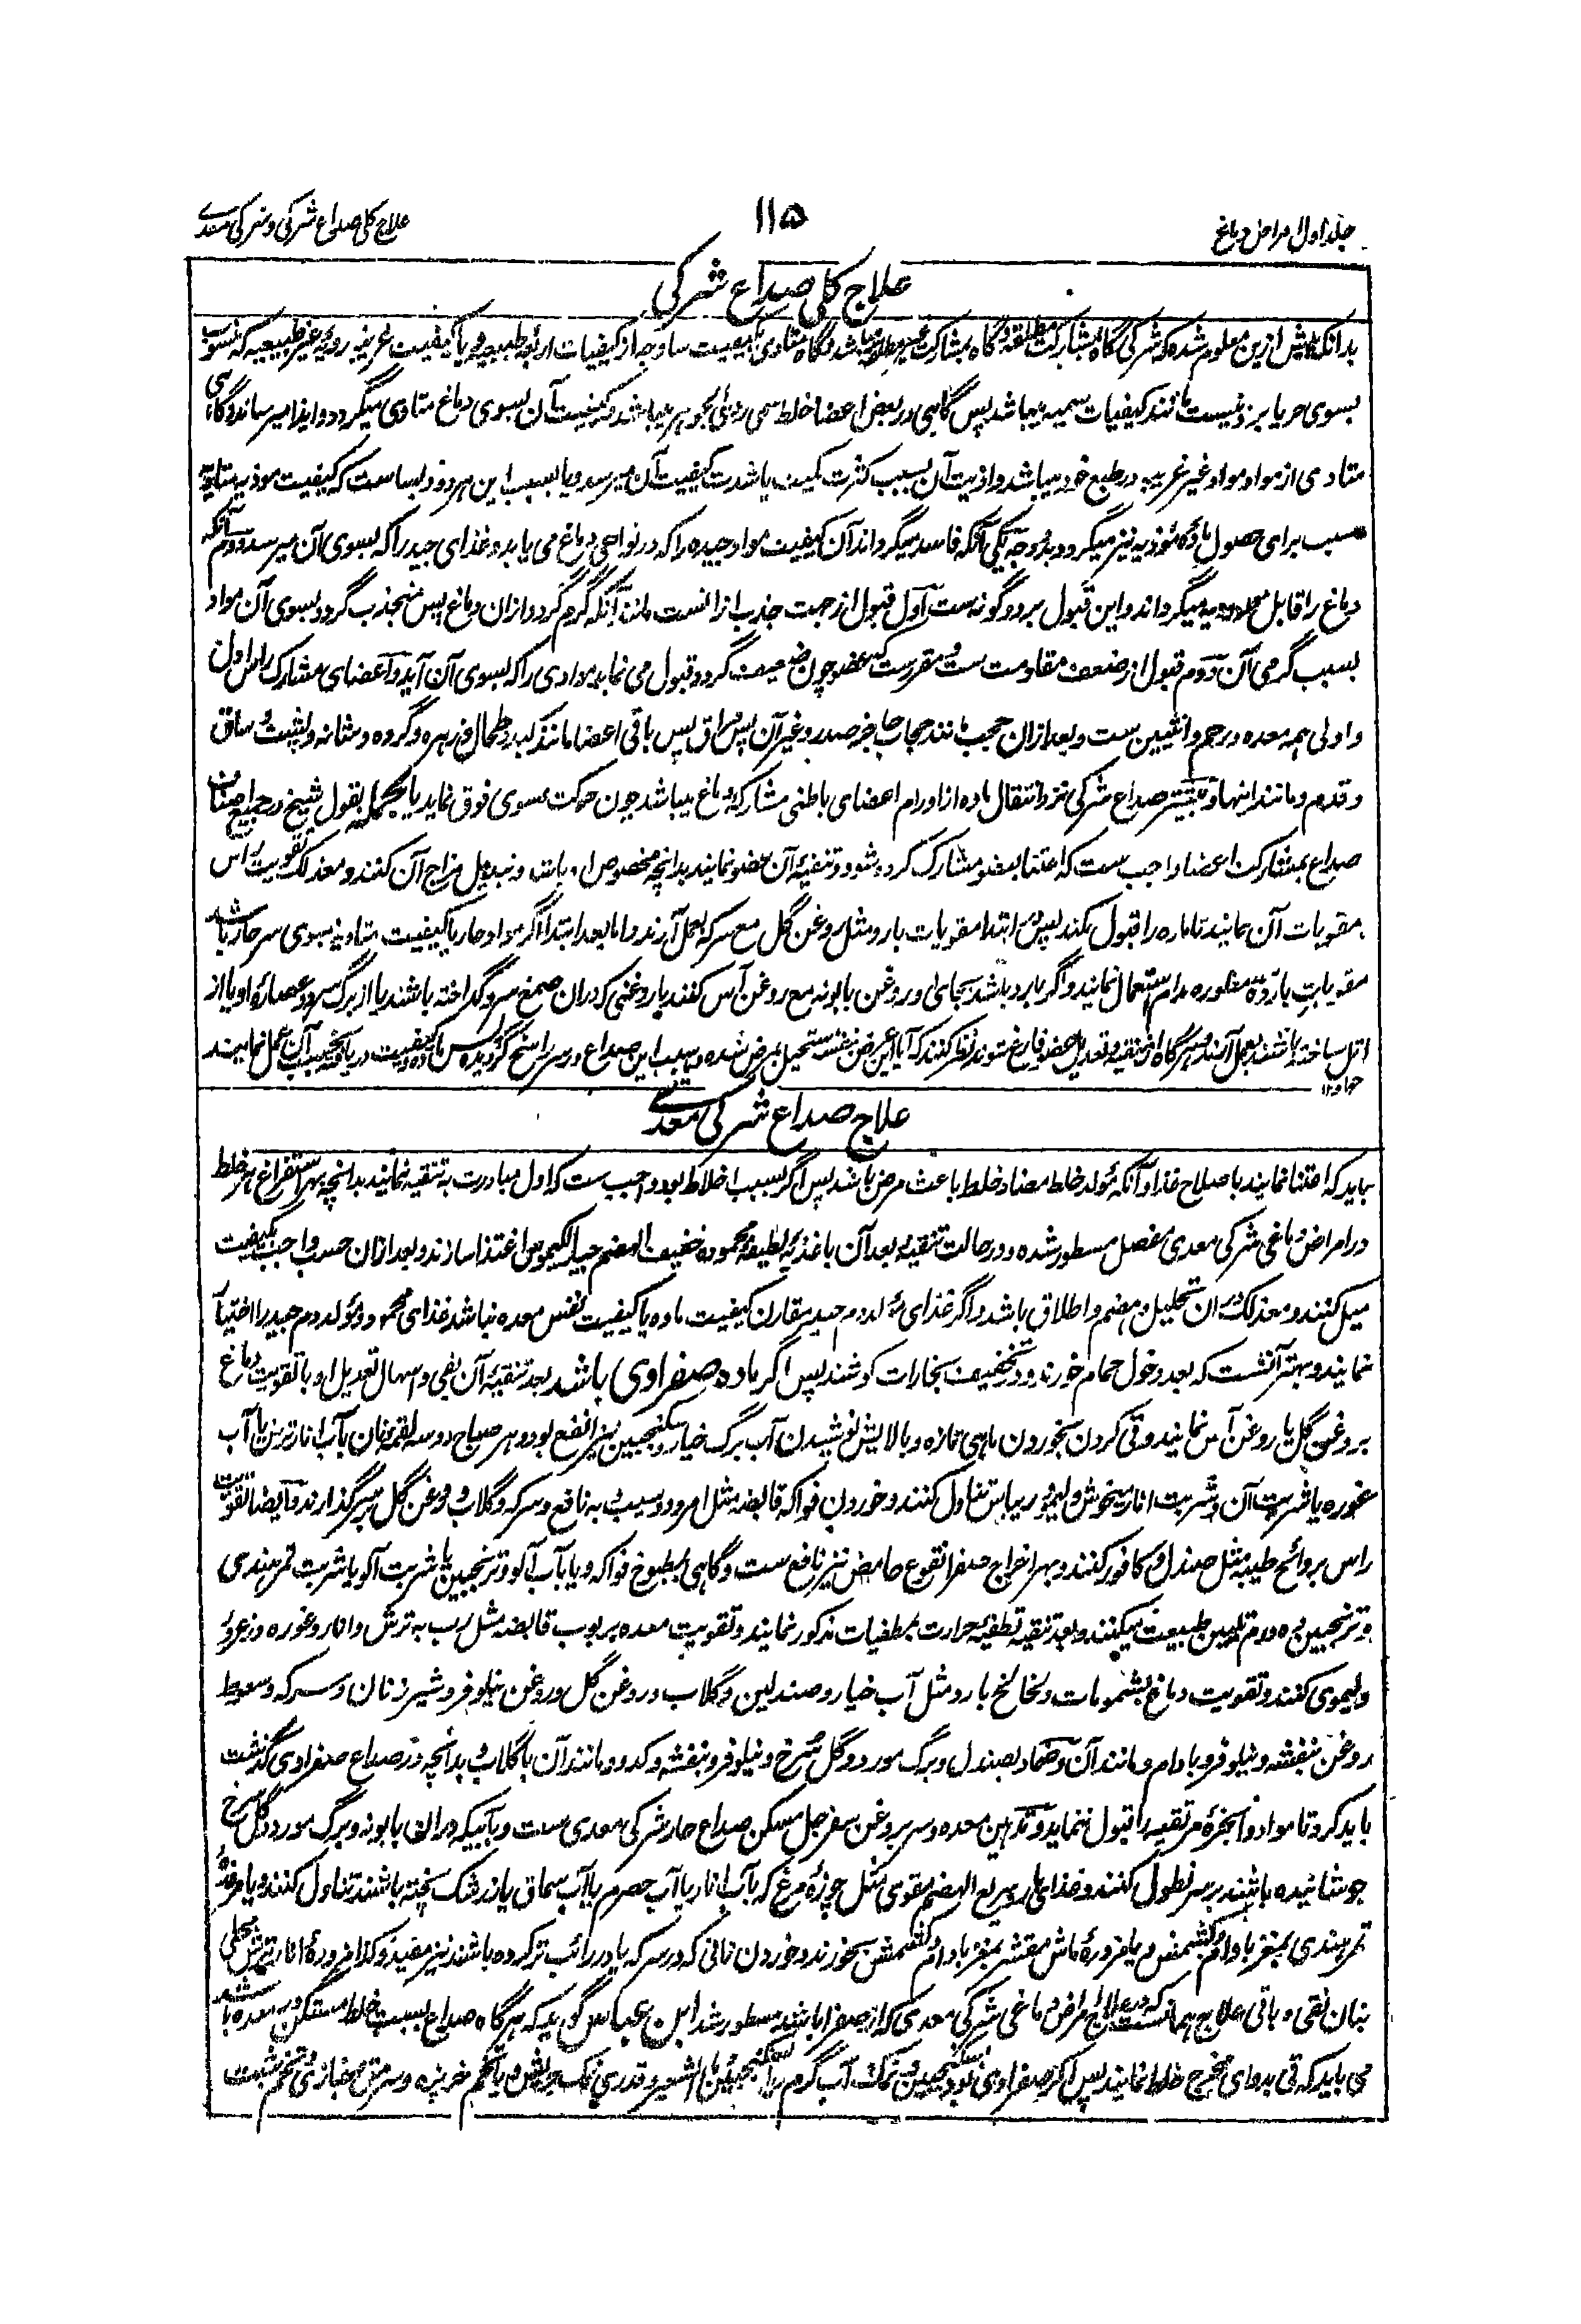 جلد اول امراض دماغ
۱۱۵
علاج کلی صداع شرکی و شرکی معدے
علاج کلی صداع شرکی
بدانکه پیش ازین معلوم شده که شرکی گاه بمشارکت مطلقه و گاه بمشارکت غیر مطلقه میباشد و گاه متادی بکیفیت ساذجه از کیفیات اربعه طبیعیه و یا کیفیت غریبه ردیه غیر طبیعیه که منسوب
بسوی حر یا برد نیست مانند کیفیات سمیه میباشد پس گاهی در بعض اعضا خلط سمی ردی الجوهر میباشد و کیفیت آن بسوی دماغ متادی میگردد و ایذا میرساند و گاهی
متادی از مواد مواد غیر غریبه در طبع خود میباشد و اذیت آن بسبب کثرت کمیت یا شدت کیفیت آن میرسد و یا بسبب این هر دو و بسا ست که کیفیت موذیه متادیه
سبب برای حصول ماده موذیه نیز میگردد بدو وجه یکی آنکه فاسد میگرداند آن کیفیت مواد جیده را که در نواحی دماغ می یابد و غذای جید را که بسوی آن میرسد دوم آنکه
دماغ را قابل مواد ردیه میگرداند و این قبول بر دو گونه ست اول قبول از جهت جذب از آنست مانند آنکه گرم گردد ازان دماغ پس منجذب گردد بسوی آن مواد
بسبب گرمی آن دوم قبول از ضعف مقاومت ست و مقررست که عضو چون ضعیف گردد قبول می نماید موادی را که بسوی آن آید و اعضای مشارک راس اول
و اولی همه معده و رحم و انثیین ست و بعد ازان حجب مانند حجاب حاجز صدر و غیر آن پس مراق پس باقی اعضا مانند کبد و طحال و زهره و گرده و مثانه و پشت و ساق
و قدم و مانند اینها و بیشتر صداع شرکی نزد انتقال ماده از اورام اعضای باطنی مشارکه دماغ میباشد چون حرکت بسوی فوق نماید بالجمله بقول شیخ در جمیع اصناف
صداع بمشارکت اعضا واجب ست که اعتنا بعضو مشارک کرده شود و تنقیه آن عضو نمایند بدانچه مخصوص او باشد و تبدیل مزاج آن کنند و معذلک تقویت راس
بمقویات آن نمایند تا ماده را قبول نکند پس در ابتدا مقویات بارد مثل روغن گل مع سرکه بعمل آرند و اما بعد ابتدا اگر مواد حار یا کیفیت متادیه بسوی سر حار باشد
مقویات بارده مسطوره مدام استعمال نمایند و اگر بارد باشد بجای او روغن بابونه مع روغن آس کنند یا روغنی که دران صمغ سرو گداخته باشند یا از برگ سرو و عصاره او یا از
اثل ساخته باشند بعمل آرند و هر گاه از تنقیه و تعدیل عضو فارغ شوند نظر کنند که آیا این عرض بنفسه مستحیل بمرض شده و بسبب این صداع در سر راسخ گردیده پس ماده و کیفیت دریافته بحسب آن عمل نمایند
علاج صداع شرکی معدے
باید که اعتنا نمایند باصلاح غذا و آنکه مولد خلط مضاد خلط باعث مرض باشد پس اگر بسبب اخلاط بود واجب ست که اول مبادرت به تنقیه نمایند بدانچه بهر استفراغ هر خلط
در امراض دماغی شرکی معدی مفصل مسطور شده و در حالت تنقیه و بعد آن باغذیه لطیفه محموده خفیف الهضم جید الکیموس اغتذا سازند و بعد ازان حسب واجب بکیفیت
میل کنند و معذلک در ان تحلیل و هضم و اطلاق باشد و اگر غذای مولد دم جید مقارن کیفیت ماده یا کیفیت نفس معده نباشد غذای محمود و مولد دم جید را اختیار
نمایند و بهتر آنست که بعد دخول حمام خورند و در تخفیف بخارات کوشند پس اگر ماده صفراوی باشد بعد تنقیه آن بقی و اسهال تعدیل او با تقویت دماغ
بروغن گل یا روغن آس نمایند و قی کردن بخوردن ماهی تازه و بالایش نوشیدن آب برگ خیار و سکنجبین نیز انفع بود و هر صباح دو سه لقمه نان بآب انار ترش یا آب
غوره یا شربت آن و شربت انار میخوش و لیمو و ریباس تناول کنند و خوردن فواکه قابضه مثل امرود و سیب و به نافع و سرکه و گلاب و روغن گل بر سر گذارند و ایضا تقویت
راس بروائح طیبه مثل صندل و کافور کنند و بهر اخراج صفرا نقوع حامض نیز نافع ست و گاهی بمطبوخ فواکه و یا بآب آلو و ترنجبین یا شربت آلو یا شربت تمر هندی
و ترنجبین ده درم تلیین طبیعت میکنند و بعد تنقیه تطفیه حرارت بمطفیات مذکور نمایند و تقویت معده بربوب قابضه مثل رب به ترش و انار و غوره و زعرور
و لیموی کنند و تقویت دماغ بمشمومات و لخالخ بارد مثل آب خیار و صندلین و گلاب و روغن گل و روغن نیلوفر و شیر زنان و سرکه و سعوط
روغن بنفشه و نیلوفر و بادام و مانند آن و ضماد بصندل و برگ مورد و گل سرخ و نیلوفر و بنفشه و کدو و مانند آن با گلاب و بدانچه در صداع صفراوی گذشت
باید کرد تا مواد و ابخره مرتقیه را قبول ننماید و تدهین معده و سر بروغن سفرجل مسکن صداع حار شرکی معدی ست و بآبیکه در ان بابونه و برگ مورد و گل سرخ
جوشانیده باشند بر سر نطول کنند و غذای بارد سریع الهضم مقوی مثل چوزه مرغ که بآب انار یا آب حصرم یا آب سماق یا زرشک پخته باشند تناول کنند و یا مزوره
تمر هندی بمغز بادام و کشمش و یا مزوره ماش مقشر بمغز بادام و کشمش بخورند و خوردن نانی که در سرکه یا در رائب تر کرده باشند نیز مفید و کذا مزوره انار ترش محلی
بنان نقی و باقی علاج همانست که در علاج امراض دماغی شرکی معدی که از صفرا باشد مسطور شد ابن عباس گوید که هر گاه صداع بسبب خلط متمکن در معده باشد
می باید که قی بدوای مخرج خلط نمایند پس اگر صفراوی بود بسکنجبین و نمک و آب گرم یا سکنجبین با ماء الشعیر و قدری نمک و یا تخم خربزه و سرمق و خبازی و تخم شبت